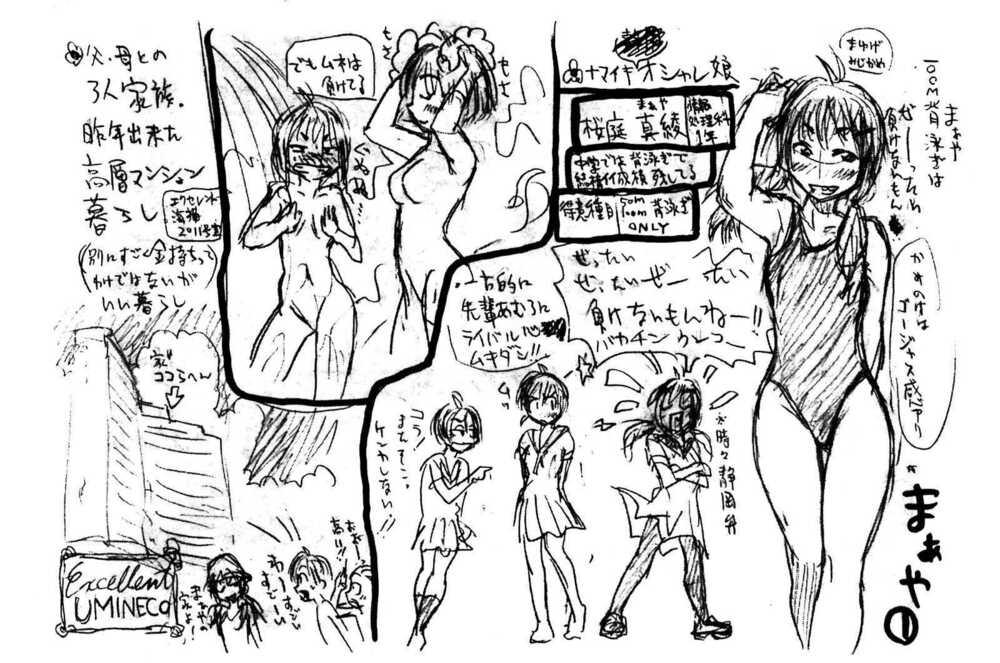 まぁや
100M背泳ぎは
ぜーったい
負けないもん
まゆげ
みじかめ
かみのけは
ゴージャス感アリ
まぁや①
ナマイキオシャレ娘
まぁや
桜庭 真綾
情報
処理科
1年
中学では背泳ぎで
結構イイ成績残してる
得意種目
50m
100m
背泳ぎ
ONLY
ぜったい
ぜったいぜーったい
負けないもんねー!!
バカチン
一方的に
先輩あむろに
ライバル心
ムキダシ!!
※時々静岡弁
コラ!
まちそこっ
ケンカしない!!
でもムネは
負けてる
父・母との
3人家族。
昨年出来た
高層マンション
暮らし
エクセレント
海猫
2011号室
(別にすごく金持ちって
わけではないが
いい暮らし
家
ココらへん
Excellent
UMINECO
おおー
高い!!
わーすごい
すごーい